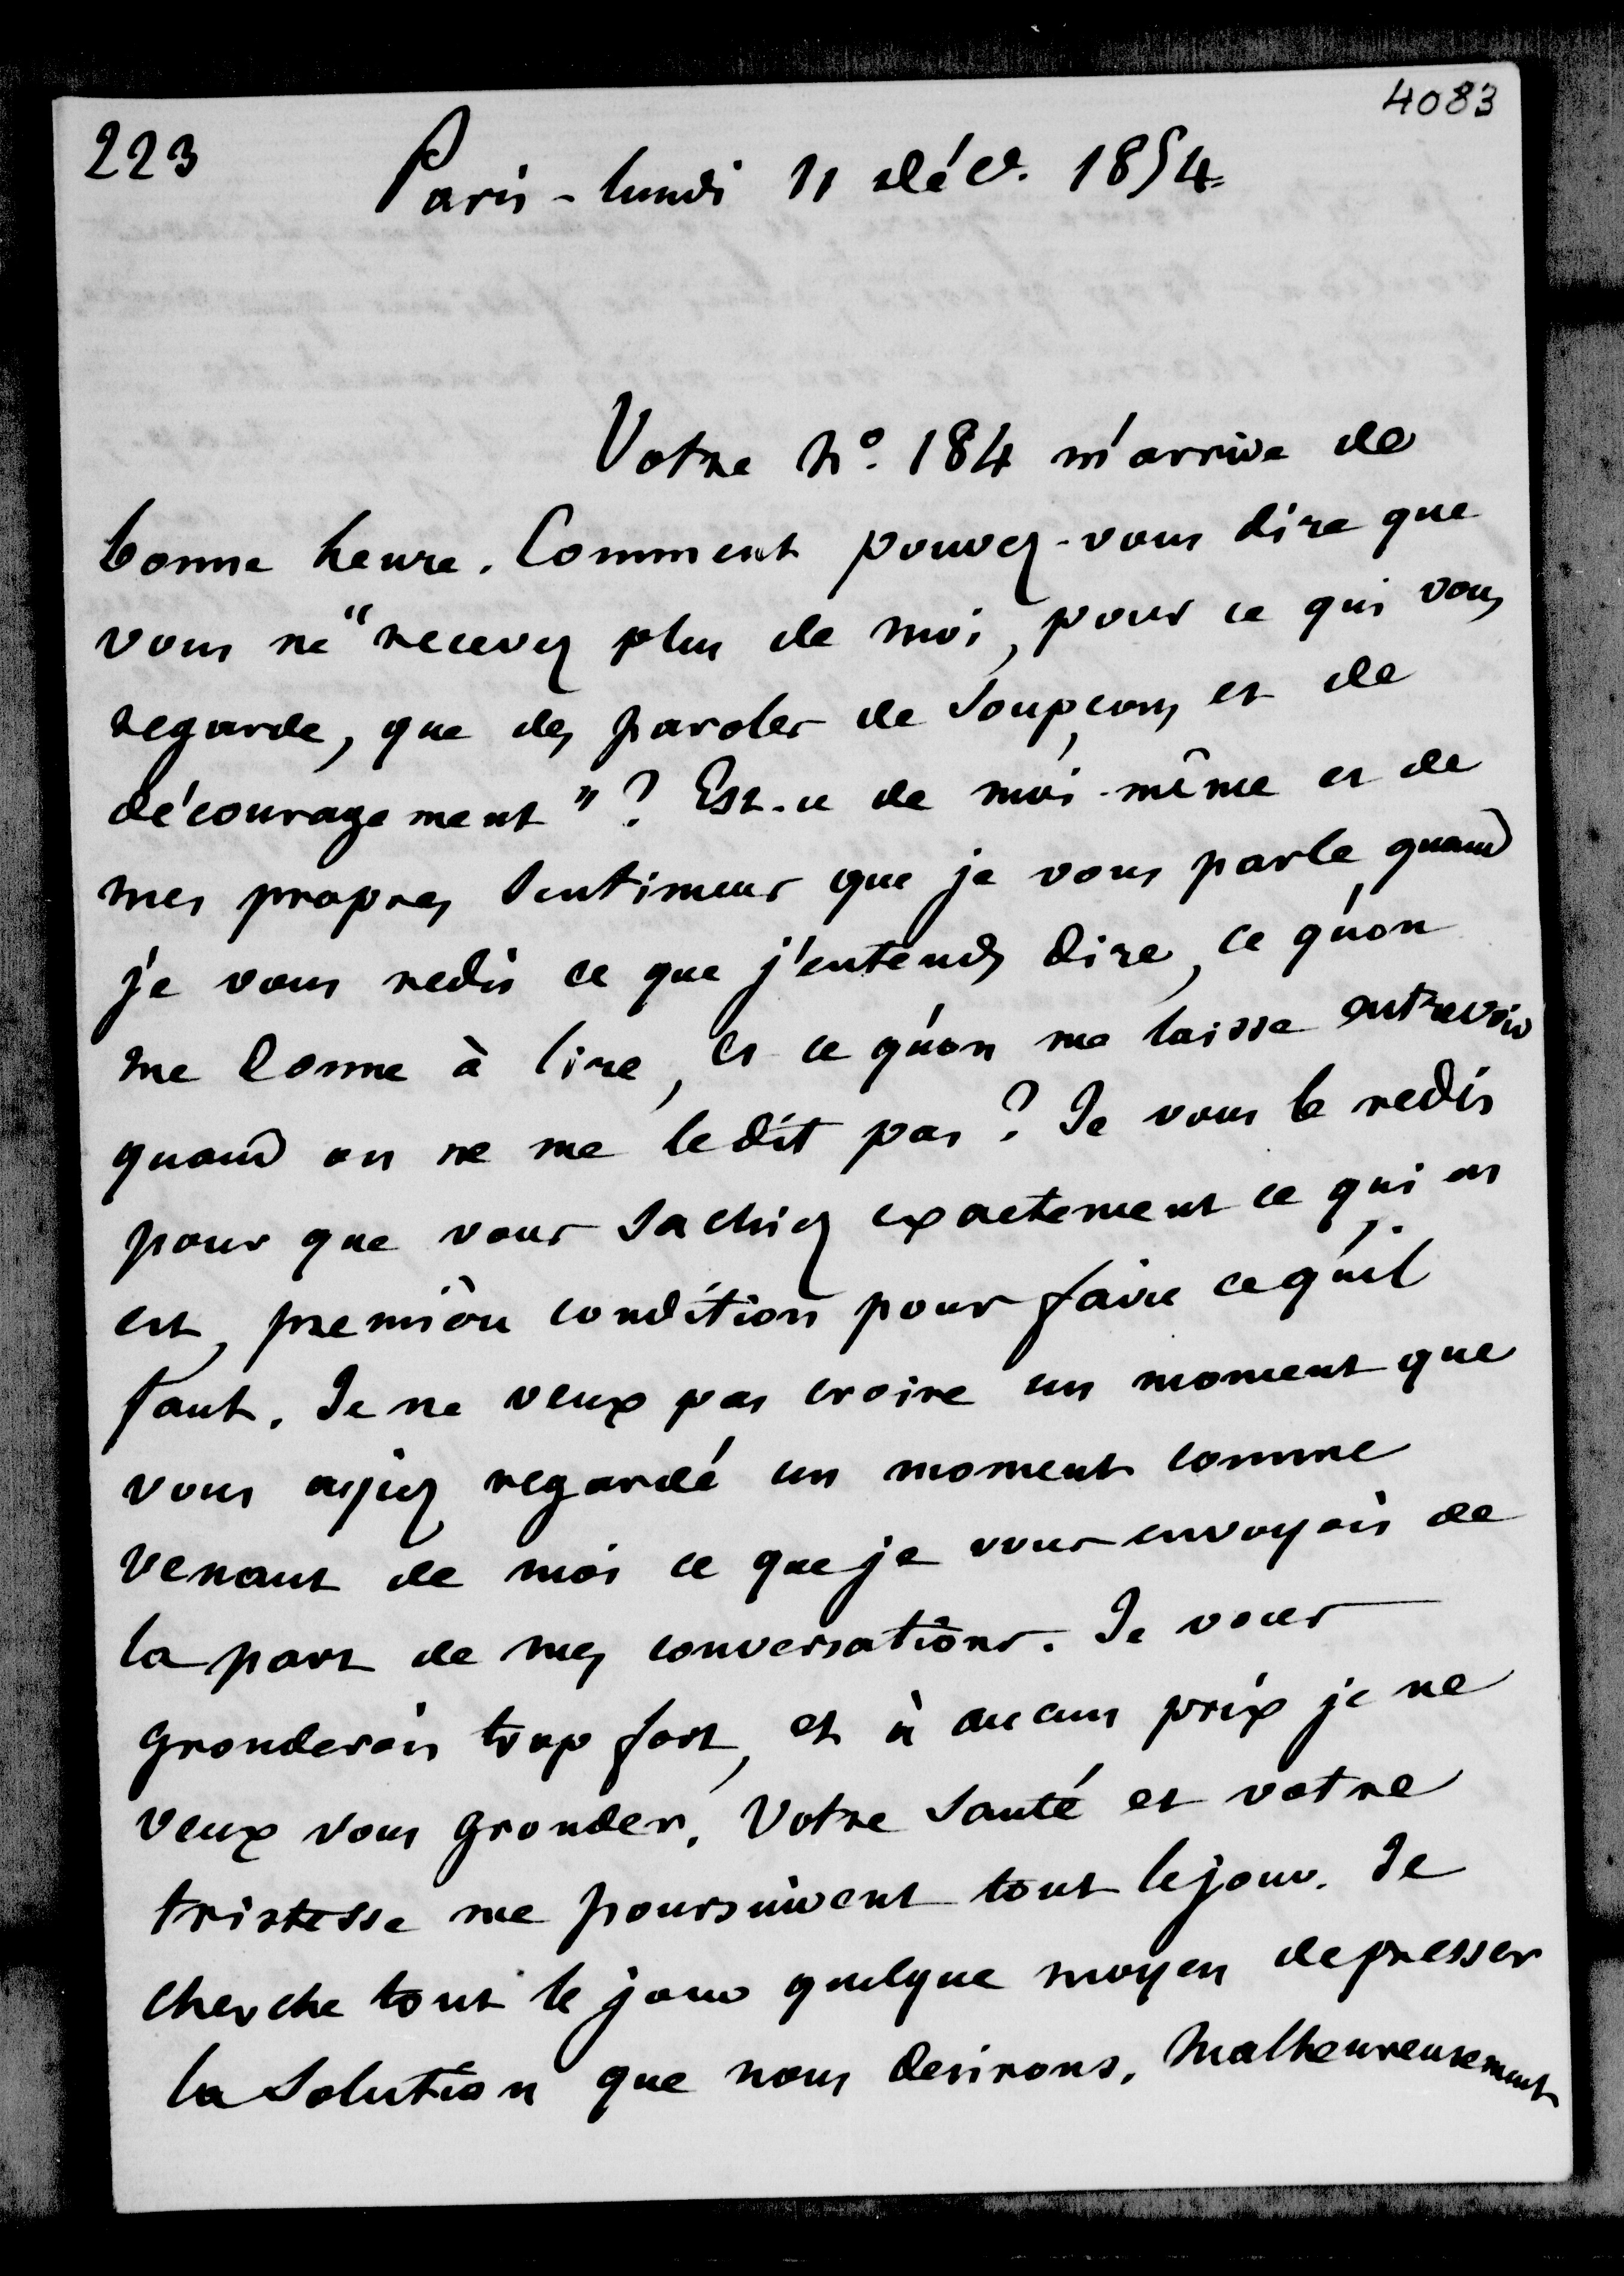 4083
223
Paris - lundi 11 Déc. 1854.
Votre N°. 184 m'arrive de
bonne heure. Comment pouvez-vous dire que
vous ne "recevez plus de moi, pour ce qui vous
regarde, que des paroles de soupçons et de
découragement"? Est-ce de moi-même et de
mes propres sentimens que je vous parle, quand
je vous redis ce que j'entends dire, ce qu'on
me donne à lire, et ce qu'on me laisse entrevoir
quand on ne me le dit pas? Je vous le redis
pour que vous sachiez exactement ce qui en
est, première condition pour faire ce qu'il
faut. Je ne veux pas croire un moment que
vous ayiez regardé un moment comme
venant de moi ce que je vous envoyois de
la part de mes conversations. Je vous
gronderais trop fort, et à aucun prix je ne
veux vous gronder. Votre santé et votre
tristesse me poursuivent tout le jour. Je
cherche tout le jour quelque moyen de presser
la solution que nous desirons. Malheureusement